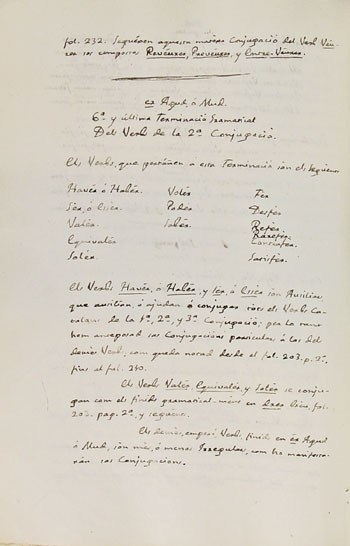 fol. 232. Segueixen aquesta mateixa Conjugació del Verb Véu-
rer sos composts Reveurer, Preveurer, y Entre-Veurer.
es Agut, ó Mud.
6ª y última Terminació Gramatical
Del Verb de la 2ª Conjugació.
Els Verbs, que pertanyen a esta Terminació son els següens
Havér ó Habér. Volér Fér
Sér, ó Esser. Podér Desfér
Valér. Sabér. Refér
Rarefér
Equivalér Contrafér
Solér. Satisfér
Els Verbs Havér, ó Habér, y sér, ó Essér son Auxiliars,
que auxilian, ó ajudan á conjugar tots els Verbs Ca-
talans de la 1ª, 2ª, y 3ª Conjugació; per lo que
hem anteposat sas Conjugacions particulars á las del
demés Verb, com queda notat desde el fol. 203. p. 2ª,
fins al fol. 210.
Els Verbs Valér, Equivalér, y Solér se conju-
gan com els finids gramatical-ment en
fol.
pag. 2ª, y
Els demés, emperó Verbs finids en ér Agut
ó Mud, son més, ó menos Irregulars, com ho manifesta-
rán sas Conjugacions.